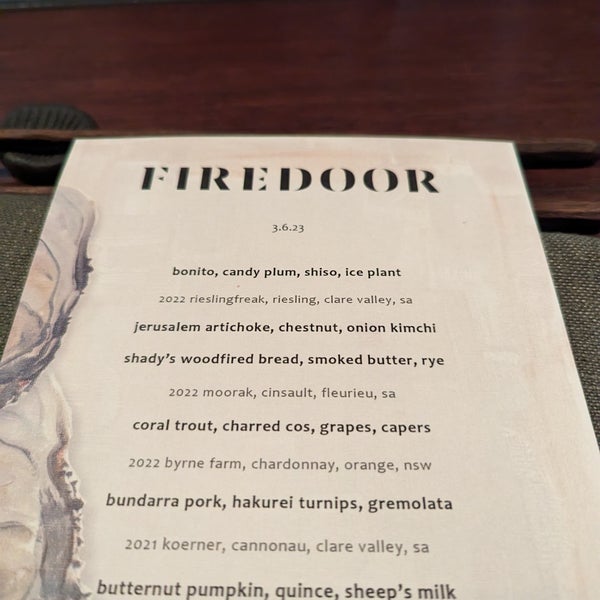 FIREDOOR
3.6.23
bonito, candy plum, shiso, ice plant
2022 rieslingfreak, riesling, clare valley, sa
jerusalem artichoke, chestnut, onion kimchi
shady's woodfired bread, smoked butter, rye
2022 moorak, cinsault, fleurieu, sa
coral trout, charred cos, grapes, capers
2022 byrne farm, chardonnay, orange, nsw
bundarra pork, hakurei turnips, gremolata
2021 koerner, cannonau, clare valley, sa
butternut pumpkin, quince, sheep's milk